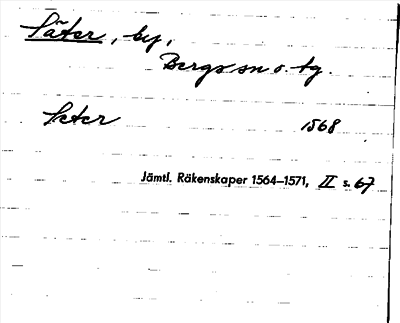 Säter, by,
Bergs sn o. tg.
Seter 1568
Jämtl. Räkenskaper 1564–1571, II s. 67